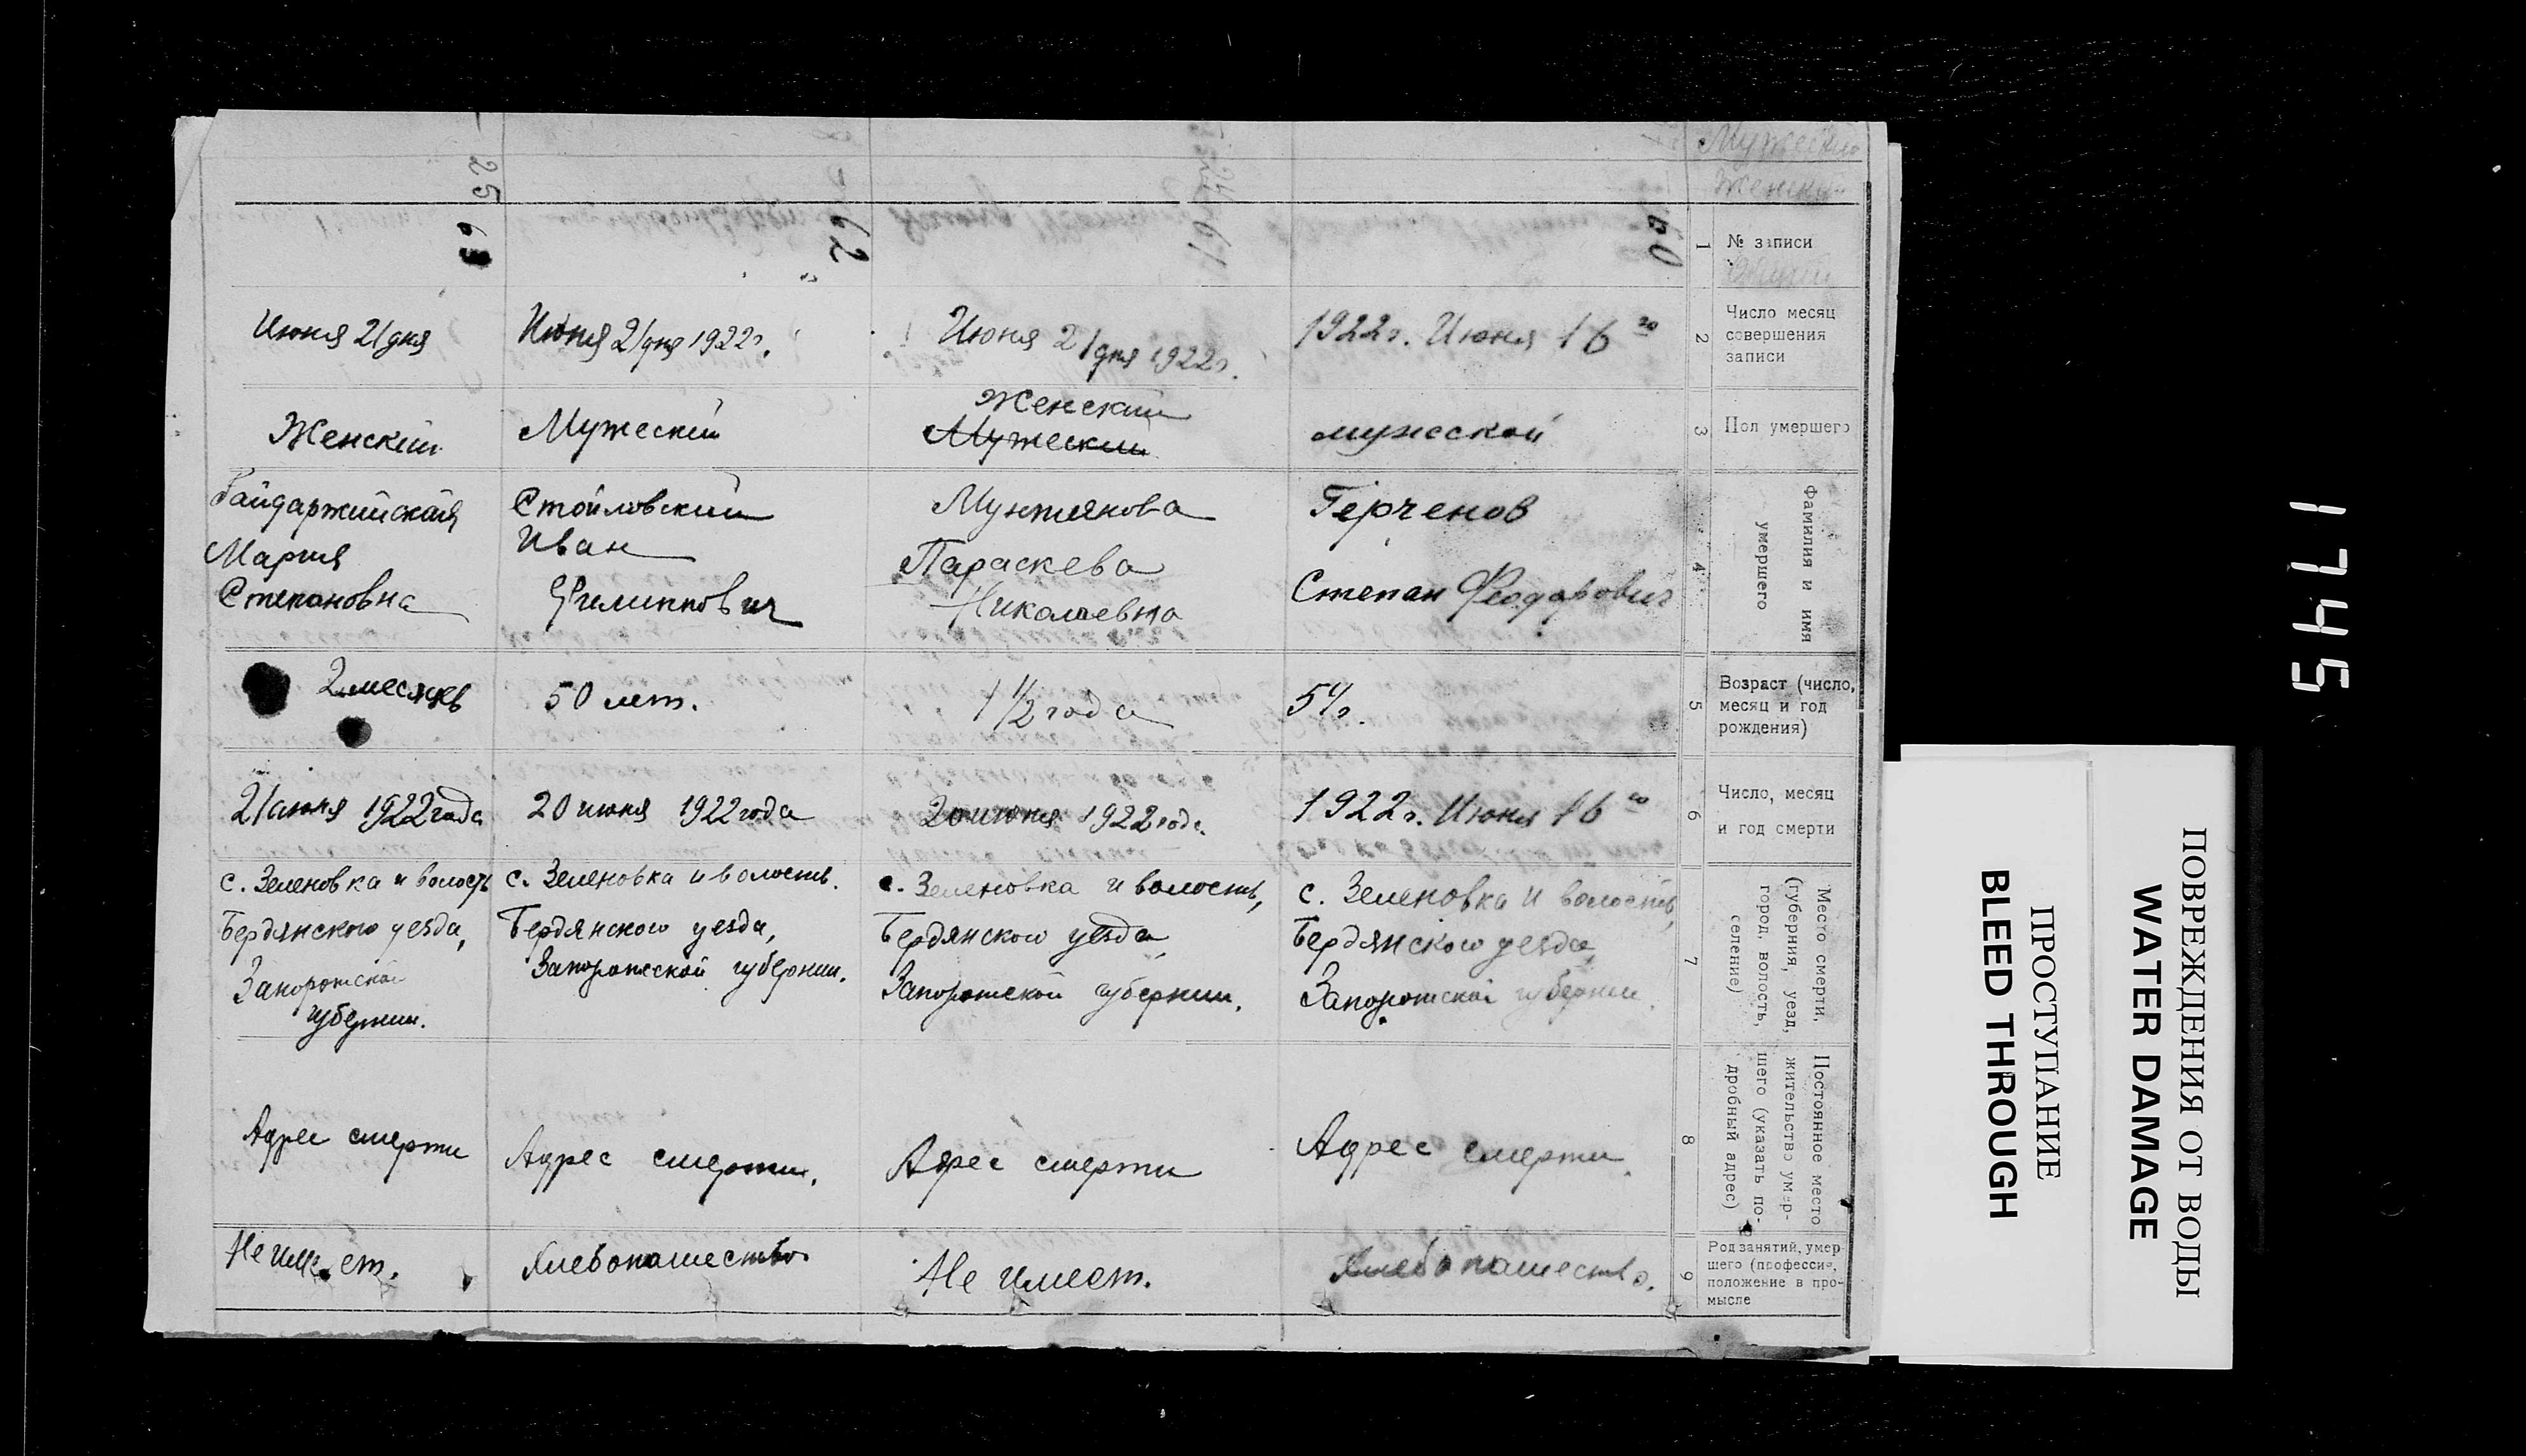 Мужеский
Женский
1
№ записи
60
61
62
25 63
2
Число месяц
совершения
записи
1922 г. Июня 16 го
Июня 21 дня 1922 г.
Июня 21 дня 1922 г.
Июня 21 дня
3
Пол умершего
мужеской
Женский
Мужеский
Мужеский
Женский
4
Фамилия и имя
умершего
Герченов
Степан Феодорович
Мунтянова
Параскева
Николаевна
Стойловский
Иван
Филиппович
Гайдаржийская
Мария
Степановна
5
Возраст (число,
месяц и год
рождения)
1 1/2 года
50 лет.
2 месяцев
6
Число, месяц
и год смерти
1922 г. Июня 16 го
20 июня 1922 года
20 июня 1922 года
21 июня 1922 года
7
Место смерти,
(губерния, уезд,
город, волость,
селение)
с. Зеленовка и волость,
Бердянского уезда,
Запорожской губернии.
с. Зеленовка и волость,
Бердянского уезда,
Запорожской губернии.
с. Зеленовка и волость.
Бердянского уезда,
Запорожской губернии.
с. Зеленовка и волость
Бердянского уезда,
Запорожской
губернии.
8
Постоянное место
жительство умер-
шего (указать по-
дробный адрес)
Адрес смерти.
Адрес смерти
Адрес смерти.
Адрес смерти
9
Род занятий, умер
шего (профессия,
положение в про-
мысле
Хлебопашество.
Не имеет.
Хлебопашество.
Не имеет.
1745
ПОВРЕЖДЕНИЯ ОТ ВОДЫ
WATER DAMAGE
ПРОСТУПАНИЕ
BLEED THROUGH